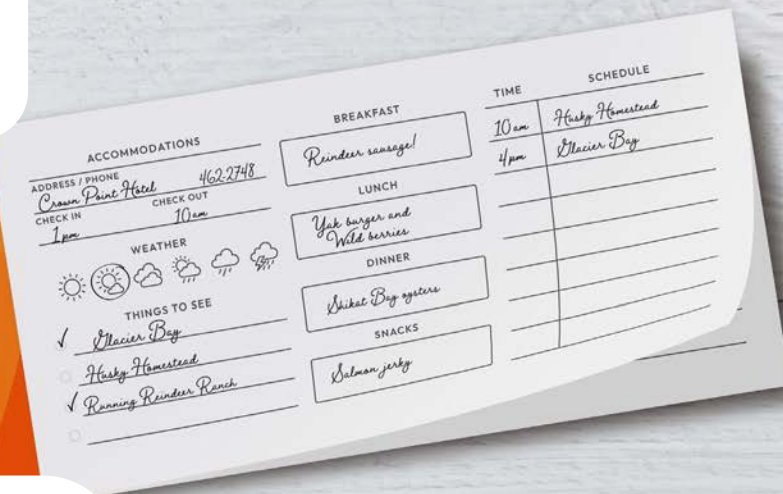 ACCOMMODATIONS
ADDRESS / PHONE
Crown Point Hotel 462-2748
CHECK IN CHECK OUT
1pm 10am
WEATHER
THINGS TO SEE
✓ Glacier Bay
Husky Homestead
✓ Running Reindeer Ranch
BREAKFAST
Reindeer sausage!
LUNCH
Yak burger and
Wild berries
DINNER
Shikat Bay oysters
SNACKS
Salmon jerky
TIME SCHEDULE
10am Husky Homestead
4pm Glacier Bay